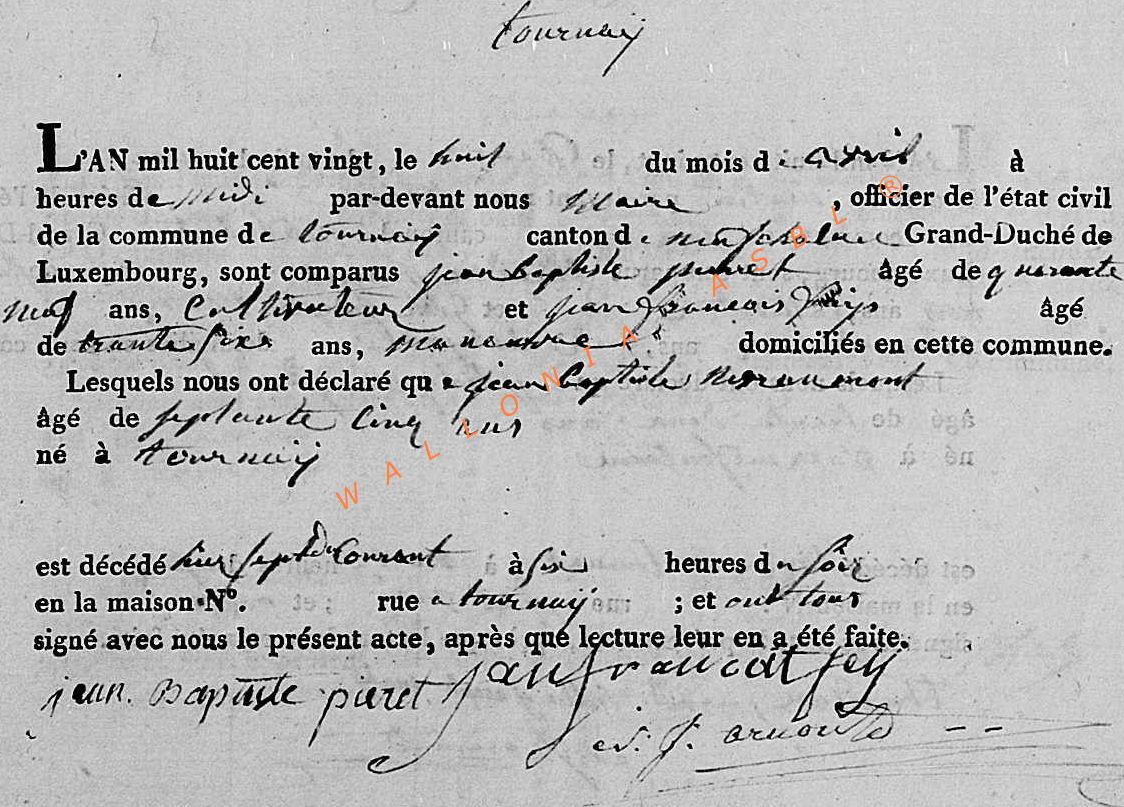 tournay
L'AN mil huit cent vingt, le huit du mois d'avril à
heures de midi par-devant nous Maire, officier de l'état civil
de la commune de tournay canton de neufchateau Grand-Duché de
Luxembourg, sont comparus jean baptiste pieret âgé de quarante
neuf ans, Cultivateur et jean francois âgé
de trante sixe ans, manouvre domiciliés en cette commune.
Lesquels nous ont déclaré que jean baptiste
âgé de septante cinq ans
né à tournay
est décédé hier sept du Courant à six heures du soir
en la maison N°. rue a tournay ; et ont tous
signé avec nous le présent acte, après que lecture leur en a été faite.
jean Baptiste pieret jean francoi
arnould
WALLONIA ASBL ®